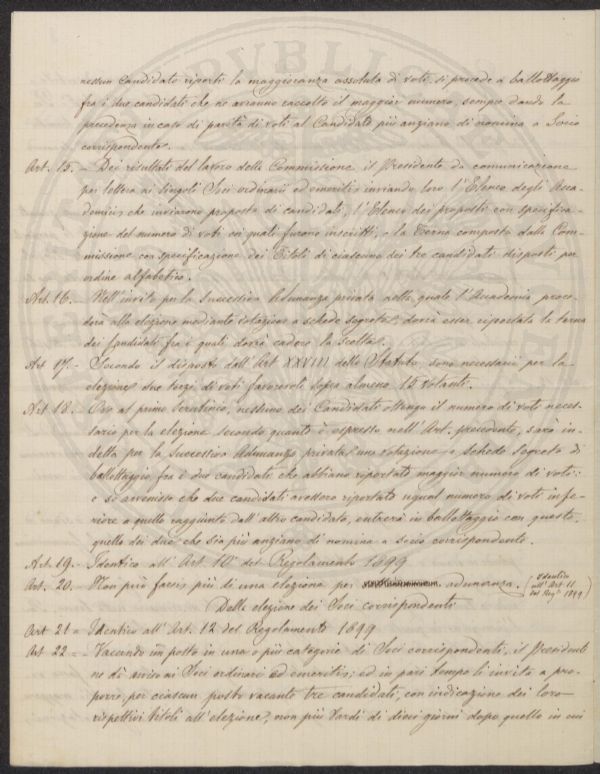 nessun candidato riporti la maggioranza assoluta di voti, si procede a ballottaggio
fra i due candidati che ne avranno raccolto il maggior numero, sempre dando la
precedenza in caso di parità di voti al Candidato più anziano di nomina a Socio
corrispondente.
Art. 15. - Dei risultati del lavoro della Commissione il Presidente dà comunicazione
per lettera ai singoli Soci ordinarii ed emeriti, inviando loro l'Elenco degli Acca-
demici che inviarono proposte di candidati, l'Elenco dei proposti con specifica-
zione del numero di voti coi quali furono inscritti, e la Terna composta dalla Com-
missione con specificazione dei Titoli di ciascuno dei tre candidati disposti per
ordine alfabetico.
Art. 16. - Nell'invito per la successiva Adunanza privata nella quale l'Accademia proce-
derà alla elezione mediante votazione a schede segrete, dovrà esser riportata la terna
dei Candidati fra i quali dovrà cadere la scelta.
Art. 17. - Secondo il disposto dell'Art. XXVIII dello Statuto, sono necessarii per la
elezione due terzi di voti favorevoli sopra almeno 15 votanti.
Art. 18. - Ove al primo scrutinio, nessuno dei Candidati ottenga il numero di voti neces-
sario per la elezione secondo quanto è espresso nell'Art. precedente, sarà in-
detta per la successiva Adunanza privata una votazione a schede segrete di
ballottaggio fra i due candidati che abbiano riportato maggior numero di voti:
e se avvenisse che due candidati avessero riportato ugual numero di voti infe-
riore a quello raggiunto dall'altro candidato, entrerà in ballottaggio con questo,
quello dei due che sia più anziano di nomina a socio corrispondente.
Art. 19. - Identico all'Art. 10 del Regolamento 1899
Art. 20. - Non può farsi più di una elezione per adunanza. (Identico
all'Art. 11
del Reg.º 1899)
Della elezione dei Soci corrispondenti
Art. 21 = Identico all'Art. 12 del Regolamento 1899
Art. 22 = - Vacando un posto in una o più categorie di Soci corrispondenti, il Presidente
ne dà avviso ai Soci ordinarii ed emeriti; ed in pari tempo li invita a pro-
porre, per ciascun posto vacante tre candidati, con indicazione dei loro
rispettivi titoli all'elezione, non più tardi di dieci giorni dopo quello in cui